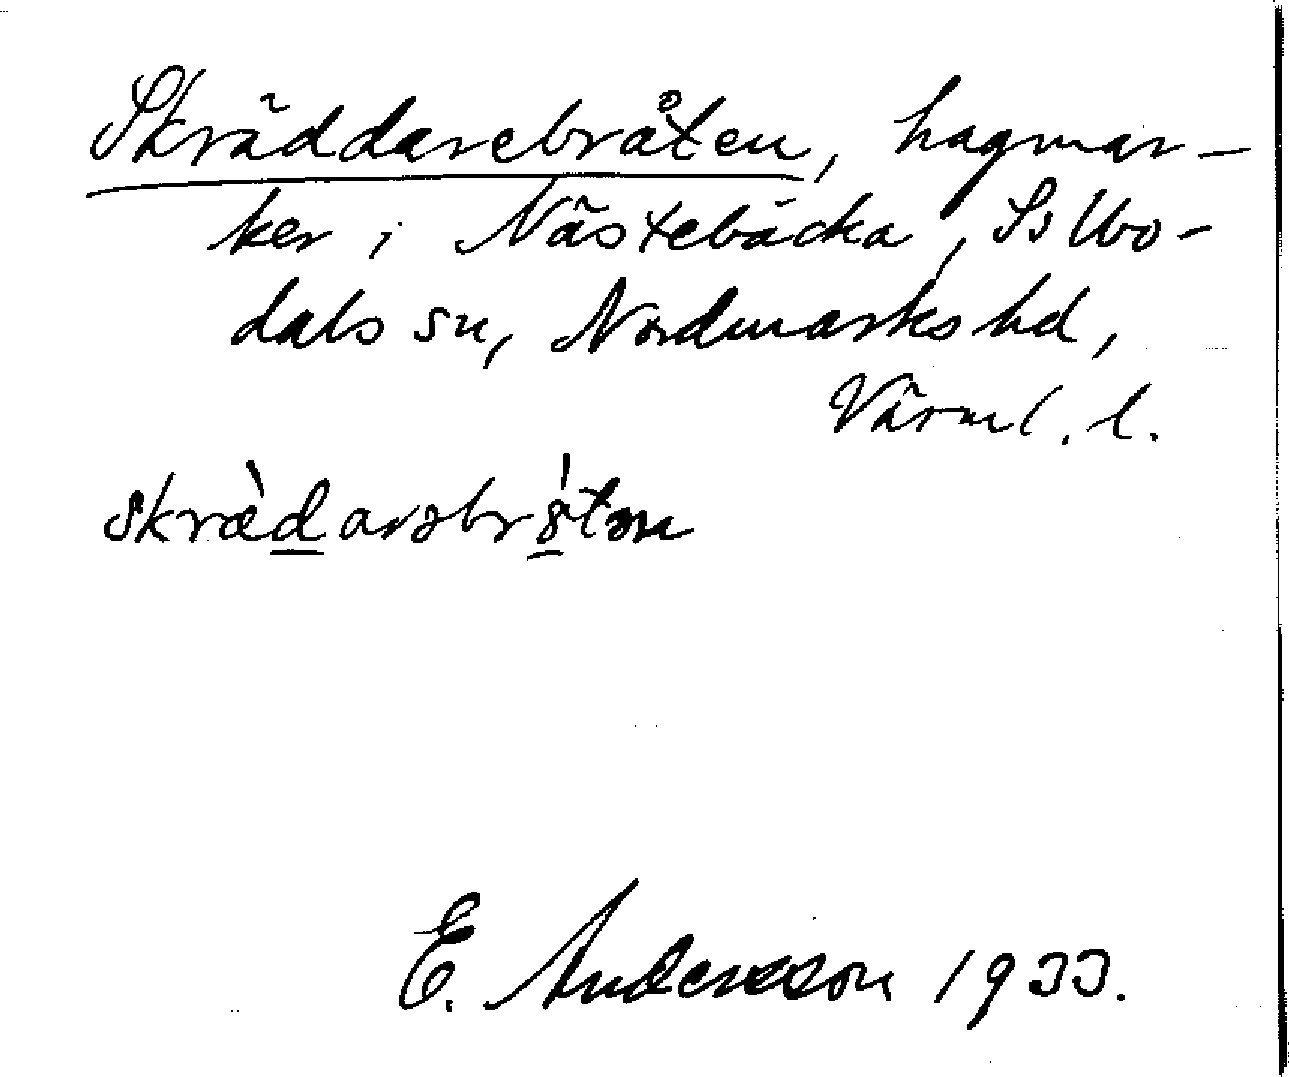 Skräddarebråten, hagmar-
ker i Nästebäcka, Sillbo-
dals sn, Nordmarks hd,
Värml. l.
skræ̀darəbr8̍tən
E. Andersson 1933.